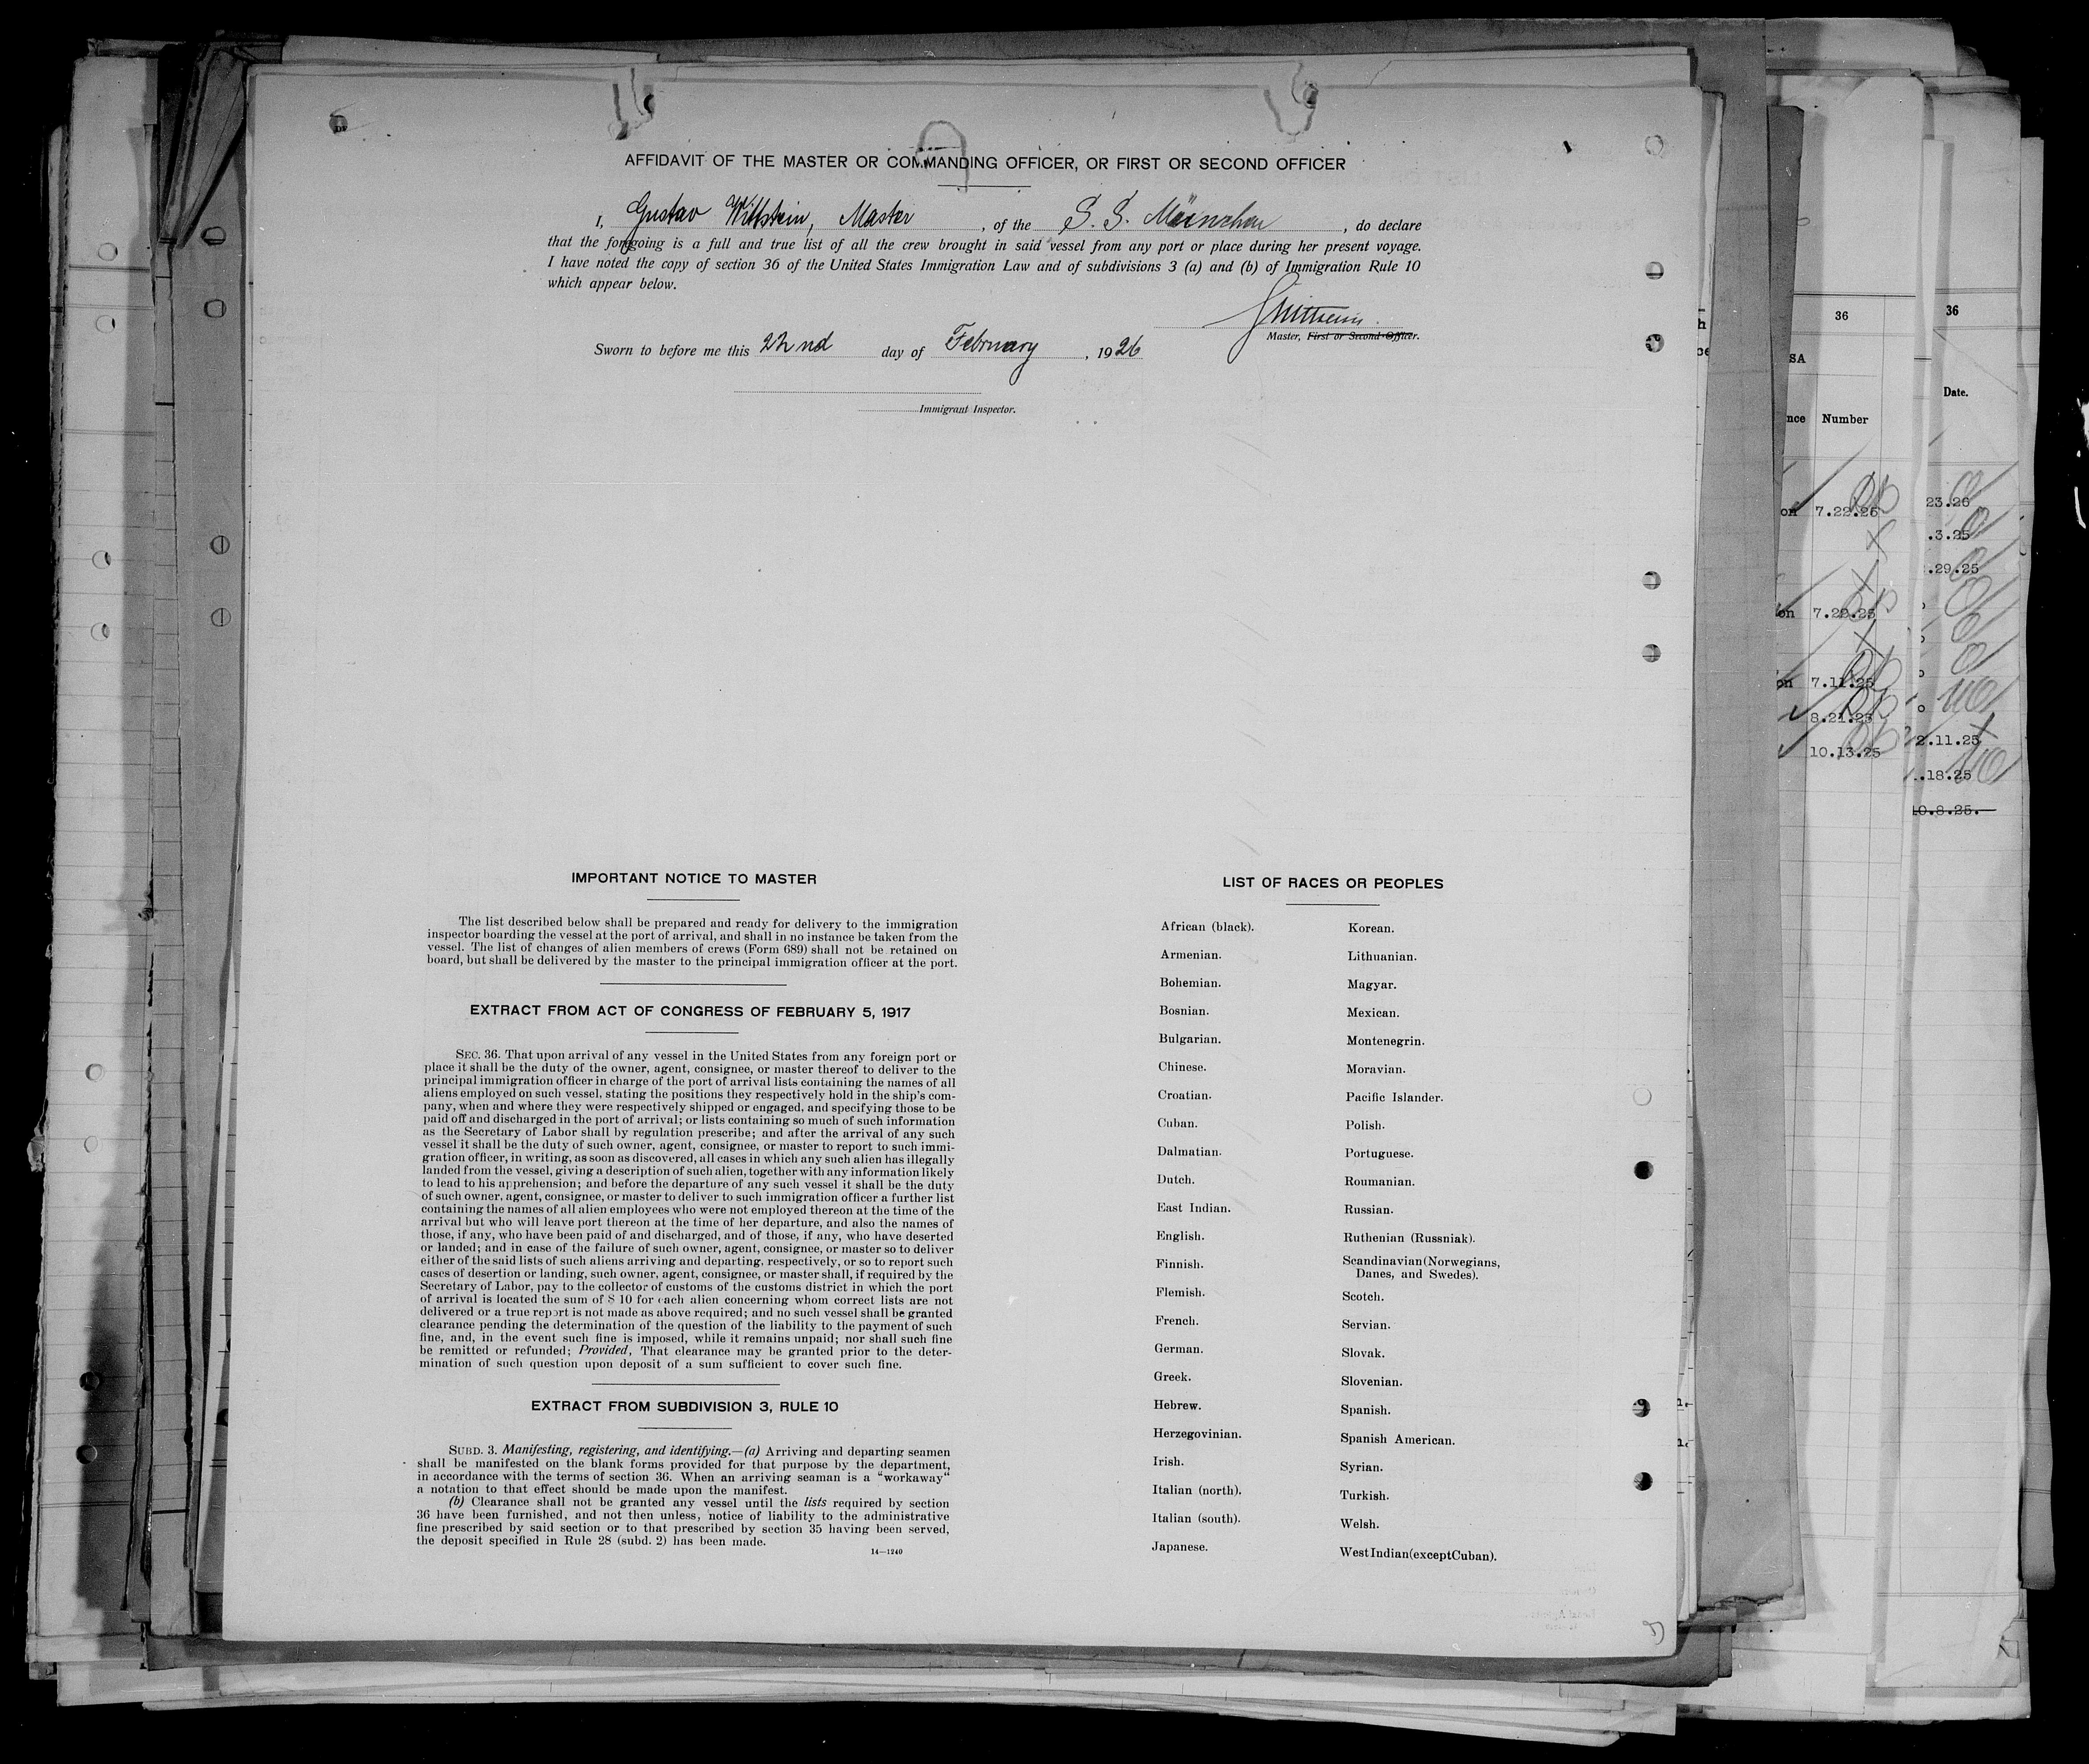 AFFIDAVIT OF THE MASTER OR COMMANDING OFFICER, OR FIRST OR SECOND OFFICER
I, Gustav Wittstein, Master, of the S. S. München, do declare
that the foregoing is a full and true list of all the crew brought in said vessel from any port or place during her present voyage.
I have noted the copy of section 36 of the United States Immigration Law and of subdivisions 3 (a) and (b) of Immigration Rule 10
which appear below.
Master, First or Second Officer.
Sworn to before me this 22nd day of February, 1926
Immigrant Inspector.
IMPORTANT NOTICE TO MASTER
The list described below shall be prepared and ready for delivery to the immigration
inspector boarding the vessel at the port of arrival, and shall in no instance be taken from the
vessel. The list of changes of alien members of crews (Form 689) shall not be retained on
board, but shall be delivered by the master to the principal immigration officer at the port.
EXTRACT FROM ACT OF CONGRESS OF FEBRUARY 5, 1917
SEC. 36. That upon arrival of any vessel in the United States from any foreign port or
place it shall be the duty of the owner, agent, consignee, or master thereof to deliver to the
principal immigration officer in charge of the port of arrival lists containing the names of all
aliens employed on such vessel, stating the positions they respectively hold in the ship's com-
pany, when and where they were respectively shipped or engaged, and specifying those to be
paid off and discharged in the port of arrival; or lists containing so much of such information
as the Secretary of Labor shall by regulation prescribe; and after the arrival of any such
vessel it shall be the duty of such owner, agent, consignee, or master to report to such immi-
gration officer, in writing, as soon as discovered, all cases in which any such alien has illegally
landed from the vessel, giving a description of such alien, together with any information likely
to lead to his apprehension; and before the departure of any such vessel it shall be the duty
of such owner, agent, consignee, or master to deliver to such immigration officer a further list
containing the names of all alien employees who were not employed thereon at the time of the
arrival but who will leave port thereon at the time of her departure, and also the names of
those, if any, who have been paid of and discharged, and of those, if any, who have deserted
or landed; and in case of the failure of such owner, agent, consignee, or master so to deliver
either of the said lists of such aliens arriving and departing, respectively, or so to report such
cases of desertion or landing, such owner, agent, consignee, or master shall, if required by the
Secretary of Labor, pay to the collector of customs of the customs district in which the port
of arrival is located the sum of $ 10 for each alien concerning whom correct lists are not
delivered or a true report is not made as above required; and no such vessel shall be granted
clearance pending the determination of the question of the liability to the payment of such
fine, and, in the event such fine is imposed, while it remains unpaid; nor shall such fine
be remitted or refunded; Provided, That clearance may be granted prior to the deter-
mination of such question upon deposit of a sum sufficient to cover such fine.
EXTRACT FROM SUBDIVISION 3, RULE 10
SUBD. 3. Manifesting, registering, and identifying.—(a) Arriving and departing seamen
shall be manifested on the blank forms provided for that purpose by the department,
in accordance with the terms of section 36. When an arriving seaman is a "workaway"
a notation to that effect should be made upon the manifest.
(b) Clearance shall not be granted any vessel until the lists required by section
36 have been furnished, and not then unless, notice of liability to the administrative
fine prescribed by said section or to that prescribed by section 35 having been served,
the deposit specified in Rule 28 (subd. 2) has been made.
14—1240
LIST OF RACES OR PEOPLES
African (black).
Armenian.
Bohemian.
Bosnian.
Bulgarian.
Chinese.
Croatian.
Cuban.
Dalmatian.
Dutch.
East Indian.
English.
Finnish.
Flemish.
French.
German.
Greek.
Hebrew.
Herzegovinian.
Irish.
Italian (north).
Italian (south).
Japanese.
Korean.
Lithuanian.
Magyar.
Mexican.
Montenegrin.
Moravian.
Pacific Islander.
Polish.
Portuguese.
Roumanian.
Russian.
Ruthenian (Russniak).
Scandinavian(Norwegians,
Danes, and Swedes).
Scotch.
Servian.
Slovak.
Slovenian.
Spanish.
Spanish American.
Syrian.
Turkish.
Welsh.
West Indian(except Cuban).
36
SA
nce Number
on 7.22.26
on 7.29.25
on 7.11.25
8.21.25
10.13.25
36
Date.
23.26
.3.25
.29.25
2.11.25
.18.25
10.8.25.